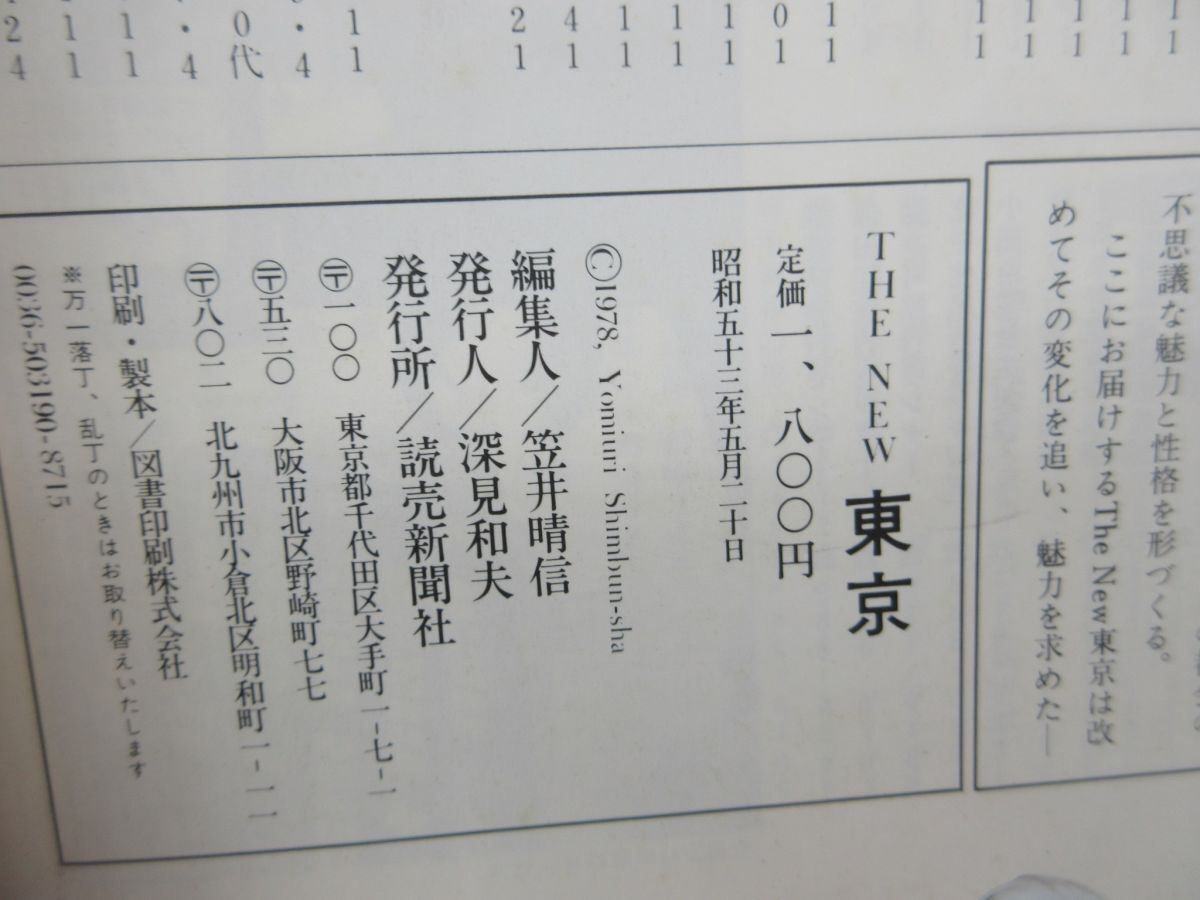 不思議な魅力と性格を形づくる。
ここにお届けするThe New東京は改
めてその変化を追い、魅力を求めた―
THE NEW 東京
定価 一、八〇〇円
昭和五十三年五月二十日
©1978, Yomiuri Shimbun-sha
編集人／笠井晴信
発行人／深見和夫
発行所／読売新聞社
〶一〇〇 東京都千代田区大手町一-七-一
〶五三〇 大阪市北区野崎町七七
〶八〇二 北九州市小倉北区明和町一-一一
印刷・製本／図書印刷株式会社
※万一落丁、乱丁のときはお取り替えいたします
0036-503190-8715